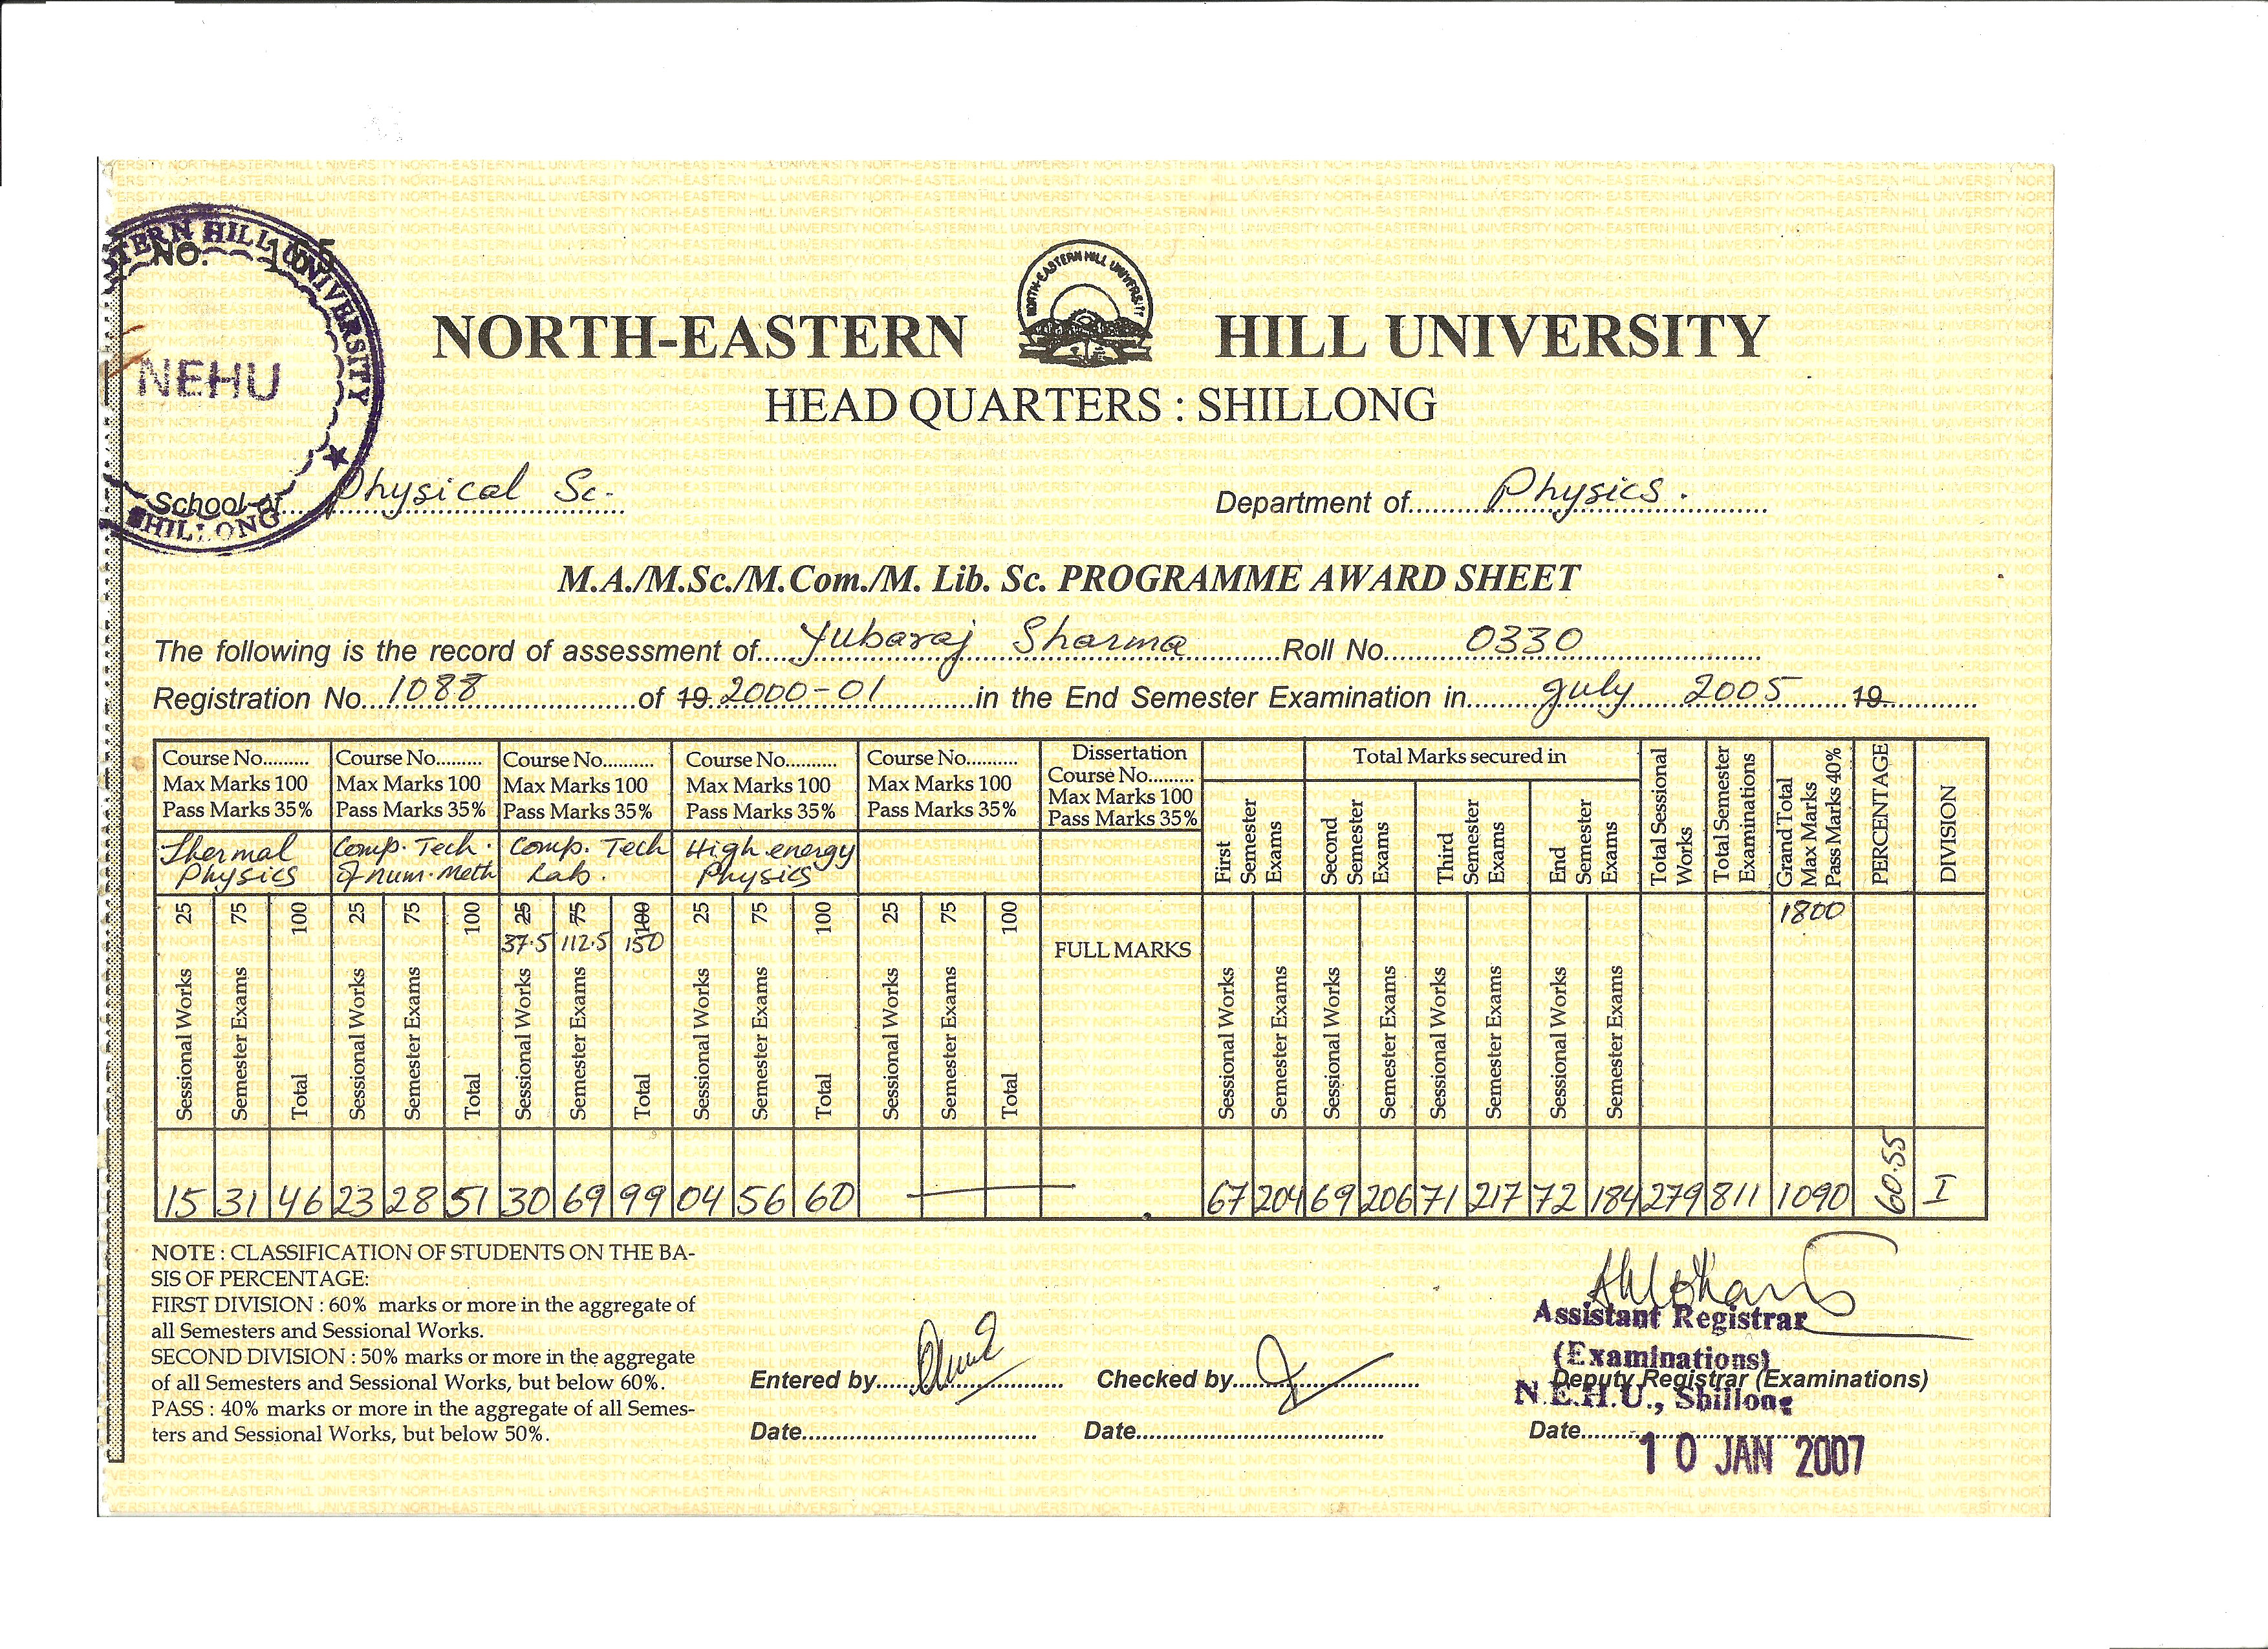 NO. 165
NORTH-EASTERN HILL UNIVERSITY
NORTH-EASTERN HILL UNIVERSITY
HEAD QUARTERS : SHILLONG
TERN HILL UNIVERSITY
NEHU
SHILLONG
School of Physical Sc.
Department of Physics.
M.A./M.Sc./M.Com./M. Lib. Sc. PROGRAMME AWARD SHEET
The following is the record of assessment of Yubaraj Sharma Roll No. 0330
Registration No. 1088 of 19 2000-01 in the End Semester Examination in July 2005 19
Course No. Course No. Course No. Course No. Course No. Dissertation Total Marks secured in
Max Marks 100 Max Marks 100 Max Marks 100 Max Marks 100 Max Marks 100 Course No.
Pass Marks 35% Pass Marks 35% Pass Marks 35% Pass Marks 35% Pass Marks 35% Max Marks 100
Pass Marks 35%
First Semester Exams Second Semester Exams Third Semester Exams End Semester Exams Total Sessional Works Total Semester Examinations Grand Total Max Marks Pass Marks 40% PERCENTAGE DIVISION
Thermal Comp. Tech. Comp. Tech High energy
Physics of num. Meth Lab. Physics
25 75 100 25 75 100 25 75 100 25 75 100 25 75 100 1800
37.5 112.5 150
FULL MARKS
Sessional Works Semester Exams Total Sessional Works Semester Exams Total Sessional Works Semester Exams Total Sessional Works Semester Exams Total Sessional Works Semester Exams Total Sessional Works Semester Exams Sessional Works Semester Exams Sessional Works Semester Exams Sessional Works Semester Exams
15 31 46 23 28 51 30 69 99 04 56 60 67 204 69 206 71 217 72 184 279 811 1090 60.55 I
NOTE : CLASSIFICATION OF STUDENTS ON THE BA-
SIS OF PERCENTAGE:
FIRST DIVISION : 60% marks or more in the aggregate of
all Semesters and Sessional Works.
SECOND DIVISION : 50% marks or more in the aggregate
of all Semesters and Sessional Works, but below 60%.
PASS : 40% marks or more in the aggregate of all Semes-
ters and Sessional Works, but below 50%.
Entered by
Date
Checked by
Date
Assistant Registrar
(Examinations)
Deputy Registrar (Examinations)
N.E.H.U., Shillong
Date
10 JAN 2007